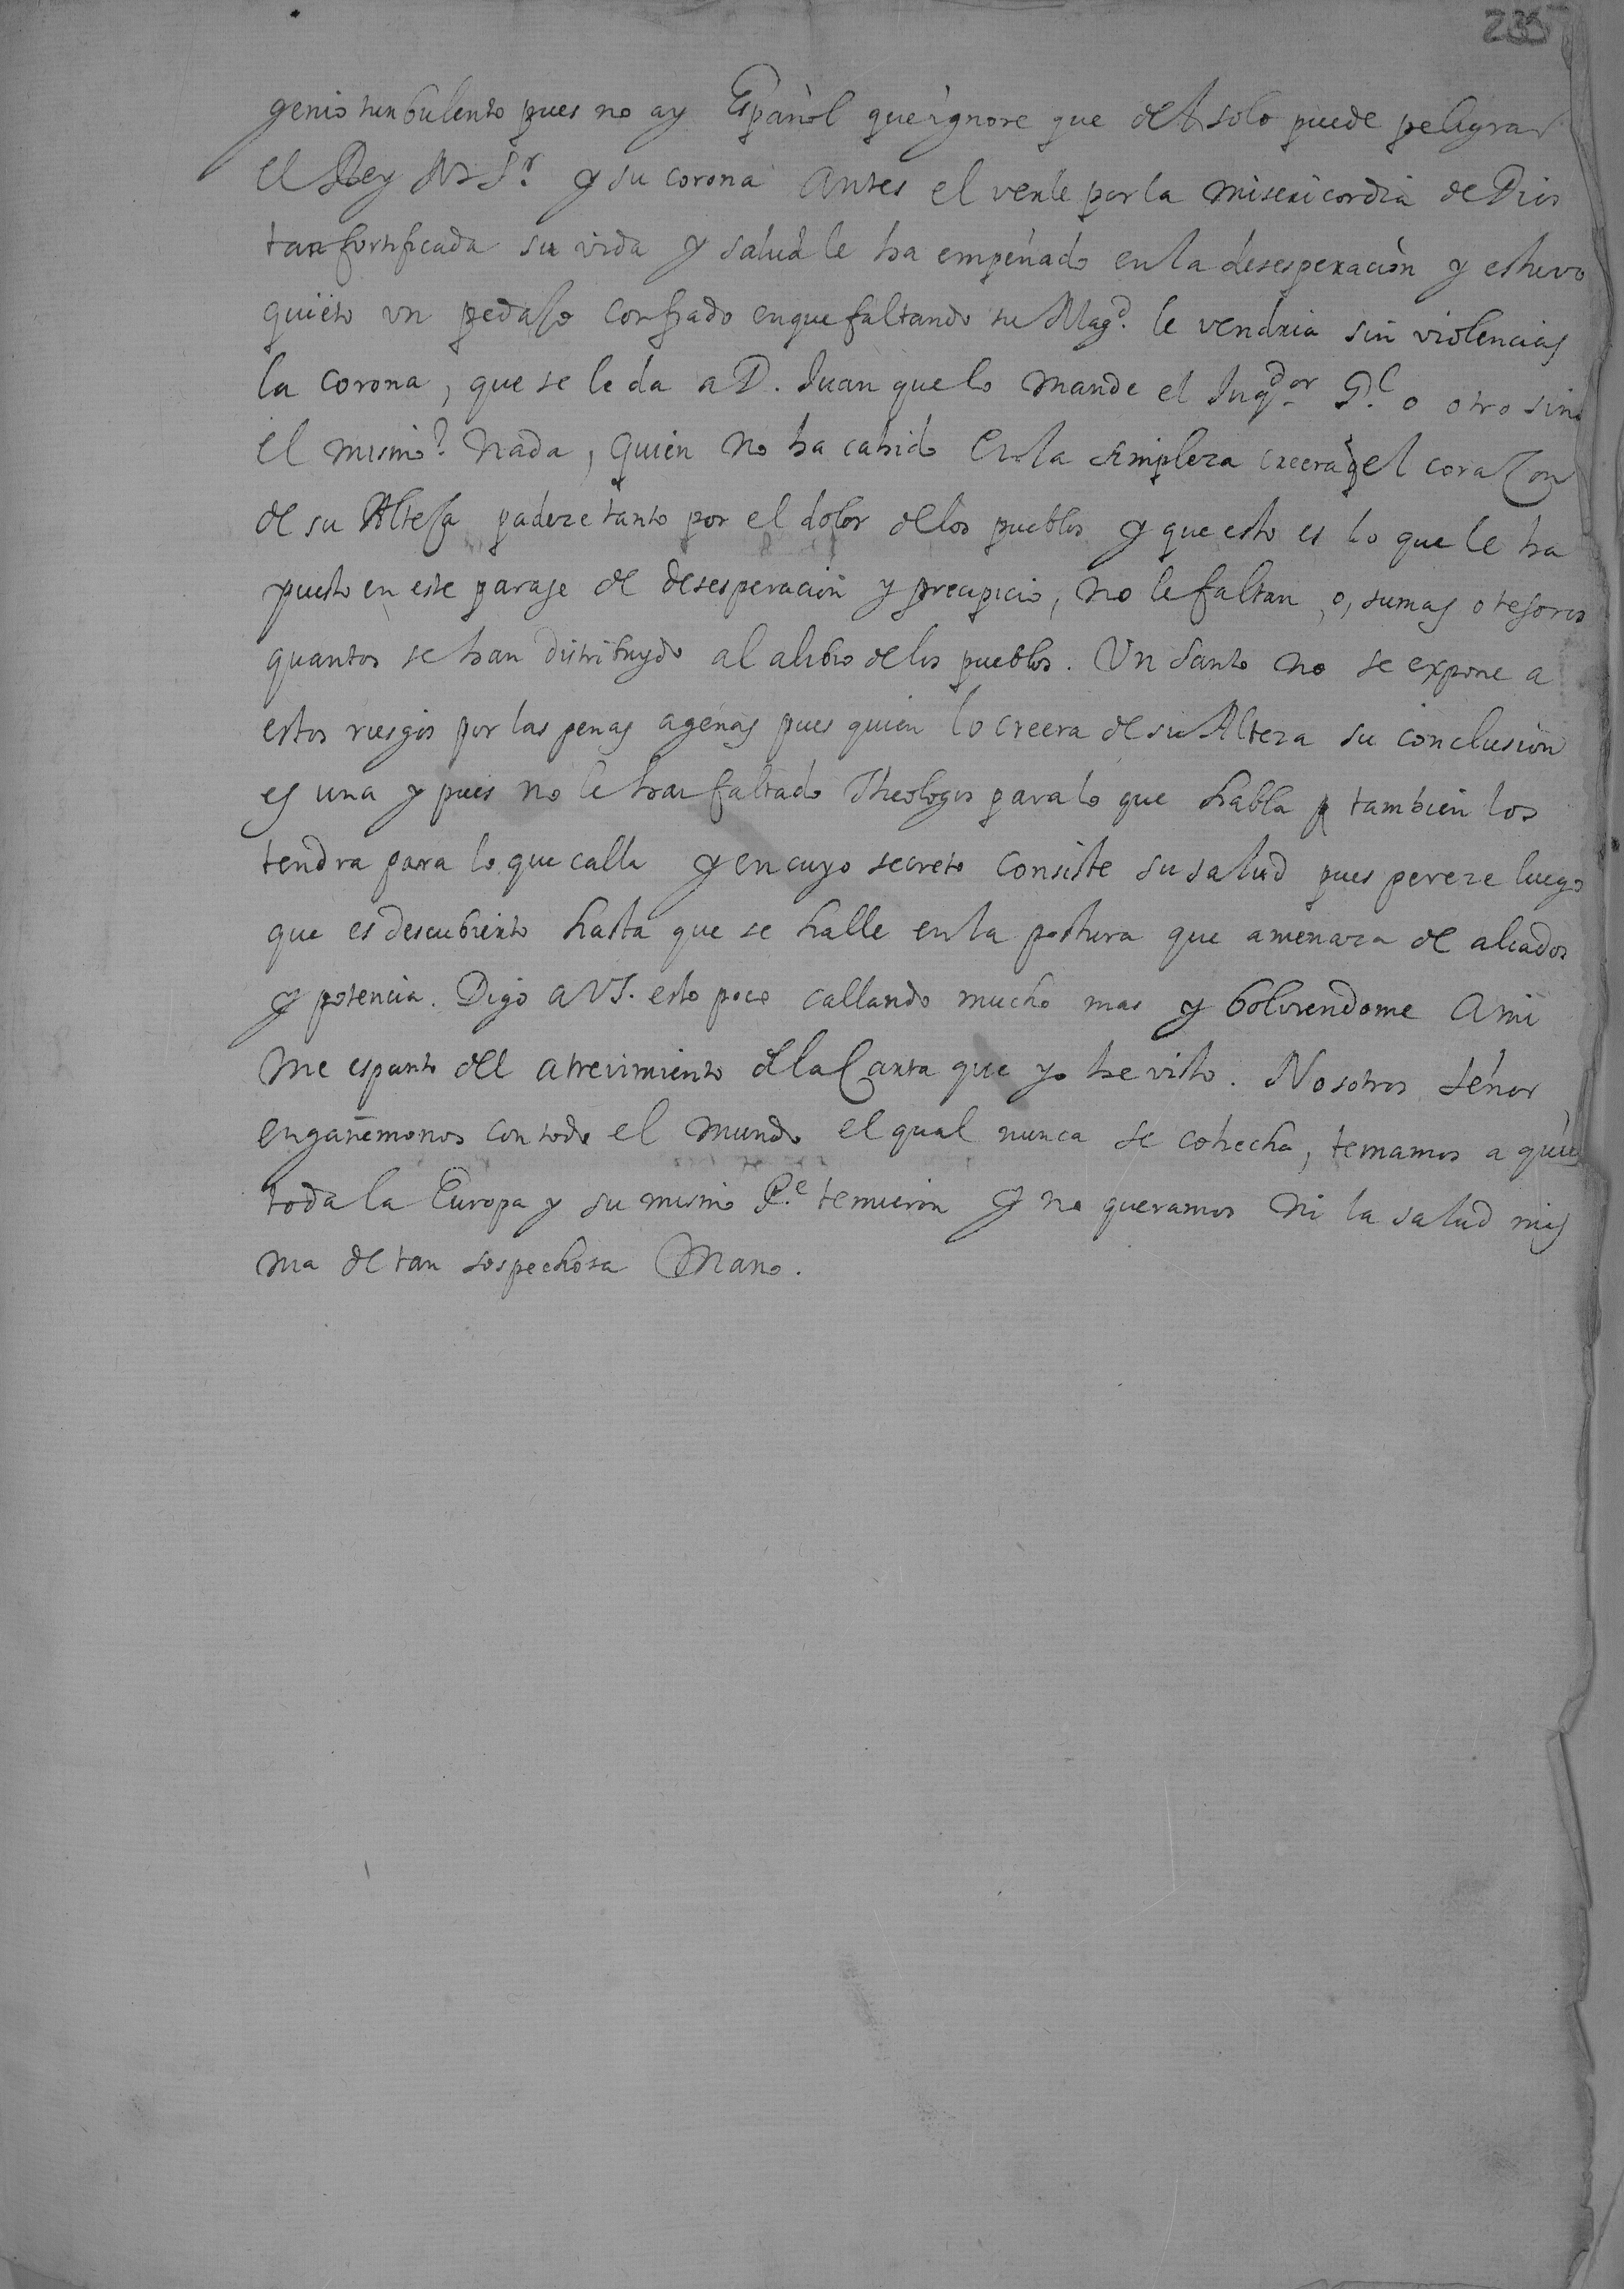 235
genio turbulento pues no ay Español que ignore que del solo puede peligrar
el Rey N S.r y su corona antes el verle por la misericordia de Dios
tan fortificada su vida y salud le ha empeñado en la desesperación y estuvo
quieto un pedaso confiado en que faltando su Mag.d le vendria sin violencias
la corona, que se le da a D. Juan que lo mande el Inq.dor G.l o otro sino
el mismo? nada, quien no ha cahido en la simpleza creera q el corazon
de su Altesa padeze tanto por el dolor de los pueblos y que esto es lo que le ha
puesto en este parage de desesperacion y precipicio, no le faltan, o, sumas o tesoros
quantos se han distribuydo al alibio de los pueblos. Un santo no se expone a
estos riesgos por las penas agenas pues quien lo creera de su Alteza su conclusion
es una y pues no le han faltado Theologos para lo que habla tambien los
tendra para lo que calla y en cuyo secreto consiste su salud pues pereze luego
que es descubierto hasta que se halle en la postura que amenaza de aliados
y potencia. Digo a VS. esto poco callando mucho mas y bolviendome a mi
me espanto del atrevimiento de la Carta que yo he visto. Nosotros señor
engañemonos con todo el mundo el qual nunca se cohecha, temamos a quien
toda la Europa y su mismo P.e temieron y no queramos ni la salud mis
ma de tan sospechosa Mano.